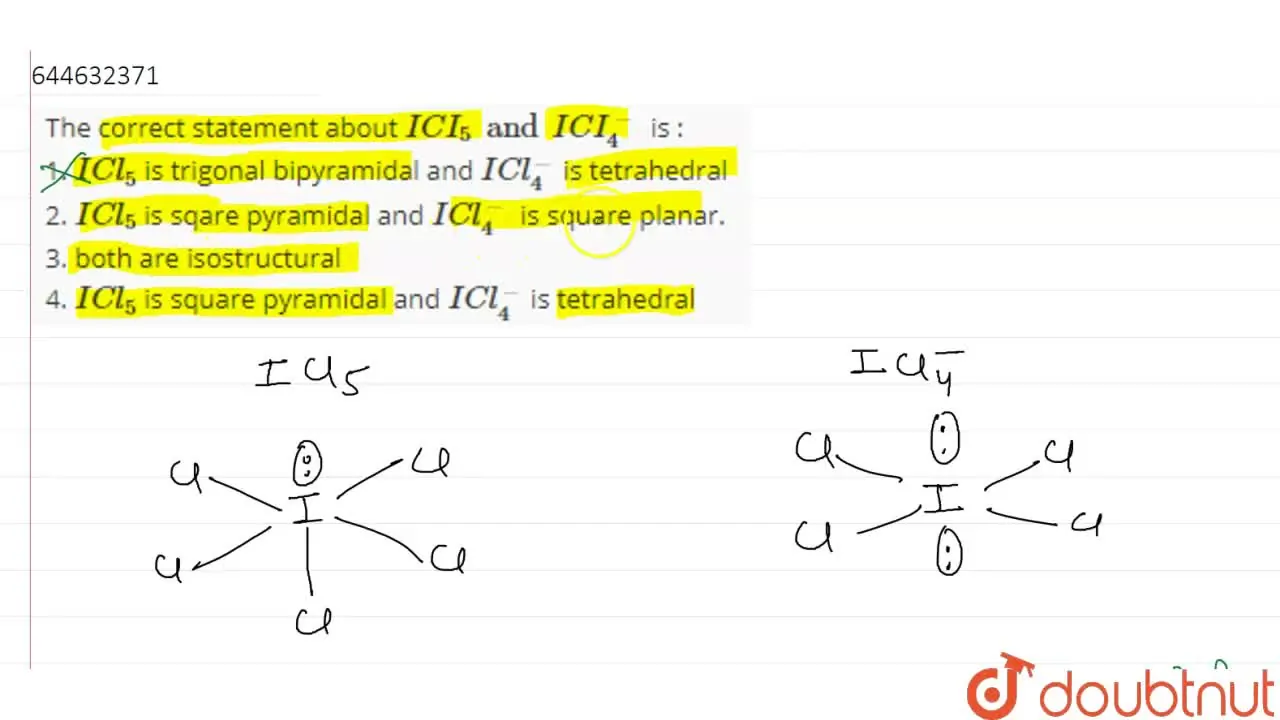 644632371
The correct statement about ICI₅ and ICI₄⁻ is :
1. ICl₅ is trigonal bipyramidal and ICl₄⁻ is tetrahedral
2. ICl₅ is sqare pyramidal and ICl₄⁻ is square planar.
3. both are isostructural
4. ICl₅ is square pyramidal and ICl₄⁻ is tetrahedral
ICl₅
ICl₄⁻
Cl Cl
I
Cl Cl
Cl
Cl Cl
I
Cl Cl
doubtnut